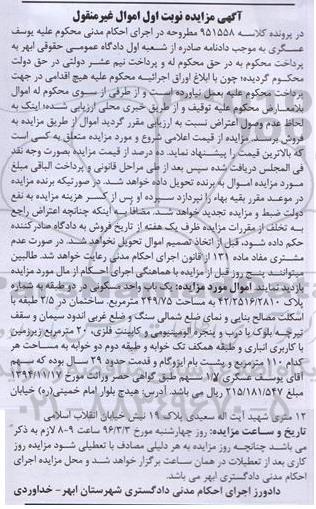 آگهی مزایده نوبت اول اموال غیرمنقول
در پرونده کلاسه ۹۵۱۵۵۸ مطروحه در اجرای احکام مدنی محکوم علیه یوسف
عسگری به موجب دادنامه صادره از شعبه اول دادگاه عمومی حقوقی ابهر به
پرداخت محکوم به در حق محکوم له و پرداخت نیم عشر دولتی در حق دولت
محکوم گردیده؛ چون با ابلاغ اوراق اجرائیه محکوم علیه هیچ اقدامی در جهت
پرداخت محکوم علیه بعمل نیاورده است و از طرفی از سوی محکوم له اموال
بلامعارض محکوم علیه توقیف و از طریق خبری محلی ارزیابی شده؛ اینک به
لحاظ عدم وصول اعتراض نسبت به ارزیابی مقرر گردید اموال از طریق مزایده به
فروش برسند. مزایده از قیمت اعلامی شروع و مورد مزایده متعلق به کسی است
که بالاترین قیمت را پیشنهاد نماید. ده درصد از قیمت مزایده بصورت وجه نقد
فی المجلس دریافت شده سپس بعد از طی مراحل قانونی و پرداخت الباقی مبلغ
مورد مزایده اموال به برنده تحویل داده خواهد شد. در صورتیکه برنده مزایده
در موعد مقرر بقیه بهاء را نپردازد سپرده او پس از کسر هزینه مزایده به نفع
دولت ضبط و مزایده تجدید خواهد شد. مضافا به اینکه چنانچه اعتراض راجع
به تخلف از مقررات مزایده ظرف یک هفته از تاریخ فروش به دادگاه صادرکننده
حکم داده شود، قبل از اتخاذ تصمیم اموال تحویل نخواهد شد. در صورت عدم
مشتری مفاد ماده ۱۳۱ از قانون اجرای احکام مدنی رعایت خواهد شد. طالبین
میتوانند پنج روز قبل از مزایده با هماهنگی اجرای احکام از مال مورد مزایده
بازدید نمایند. اموال مورد مزایده: یک باب واحد مسکونی در دو طبقه به شماره
پلاک ۴۲/۲۵۱۶/۲۸۱۰ به مساحت ۲۴۹/۷۵ مترمربع. ساختمان در ۲/۵ طبقه با
اسکلت مصالح بنایی و نمای ضلع شمالی سنگ و ضلع غربی اندود سیمان و سقف
تیرچه بلوک با درب و پنجره آلومینیومی و کابینت فلزی. ۲۰ مترمربع زیرزمین
با کاربری انباری و طبقه همکف تک خوابه و طبقه دوم دو خوابه به مساحت هر
کدام ۱۱۰ مترمربع و پشت بام ایزوگام و قدمت حدود ۲۹ سال بوده که سهم
آقای یوسف عسگری ۱۷ سهم طبق گواهی حصر وراثت مورخ ۱۳۹۴/۱۱/۱۷
مبلغ ۲۱۵/۱۸۱/۵۴۷ ریال می باشد. آدرس: هیدج بلوار امام خمینی(ره) خیابان
۱۲ متری شهید آیت اله سعیدی پلاک ۱۹ نبش خیابان انقلاب اسلامی
تاریخ و ساعت مزایده: روز چهارشنبه مورخ ۹۶/۳/۳ ساعت ۹-۸ لازم به ذکر
می باشد چنانچه روز مزایده به هر دلیلی مصادف با تعطیلی شود مزایده روز
کاری بعد از تعطیلات در همان ساعت برگزار خواهد شد و محل مزایده اجرای
احکام مدنی دادگستری ابهر می باشد.
دادورز اجرای احکام مدنی دادگستری شهرستان ابهر - خداوردی